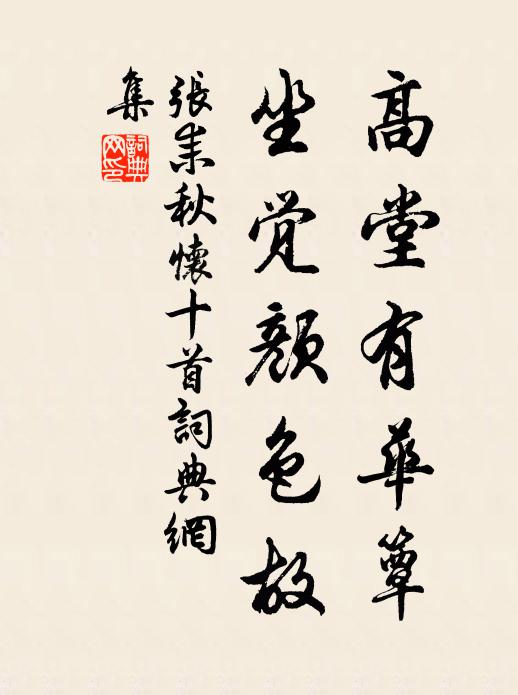 高堂有華簟
坐觉顏色故
張耒秋懷十首詞典網
集
詞典
网印